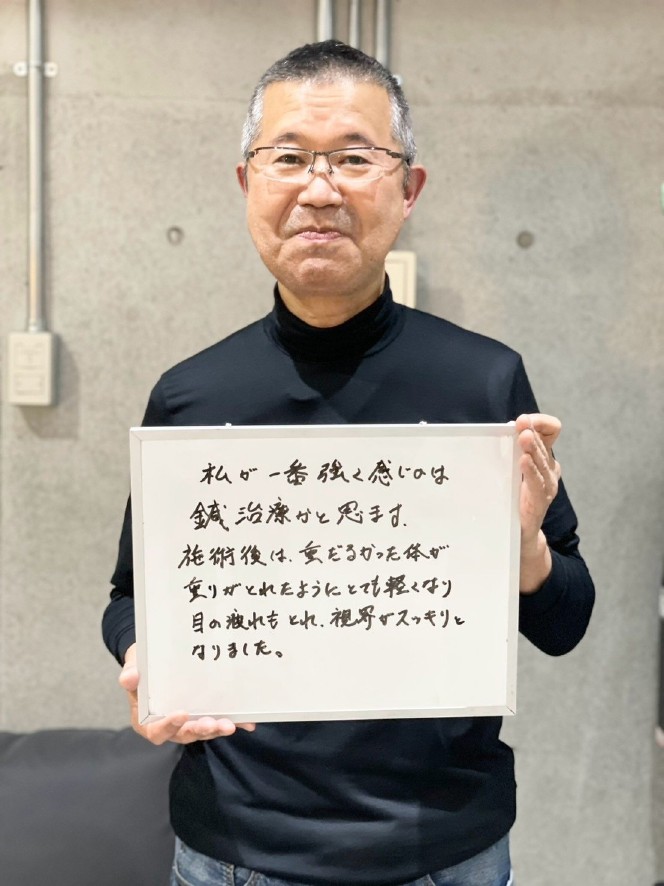 私が一番強く感じのは
鍼治療かと思ます.
施術後は、重だるかった体が
重りがとれたようにとても軽くなり
目の疲れもとれ、視界がスッキリと
なりました。